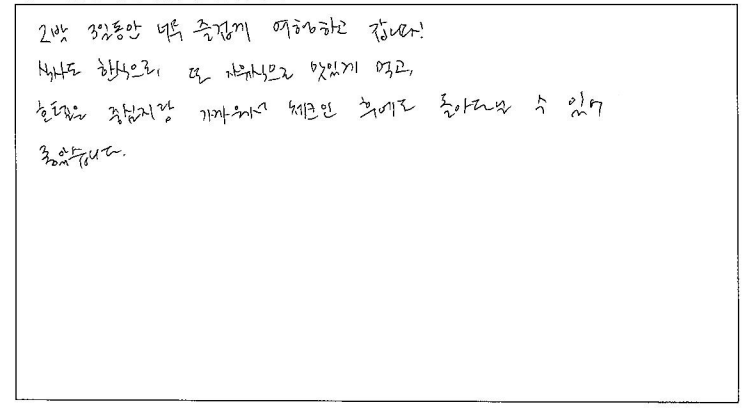 2박 3일동안 너무 즐겁게 여행하고 갑니다!
식사도 한식으로, 또 자유식으로 맛있게 먹고,
호텔은 중심지랑 가까워서 체크인 후에도 돌아다닐 수 있어
좋았습니다.